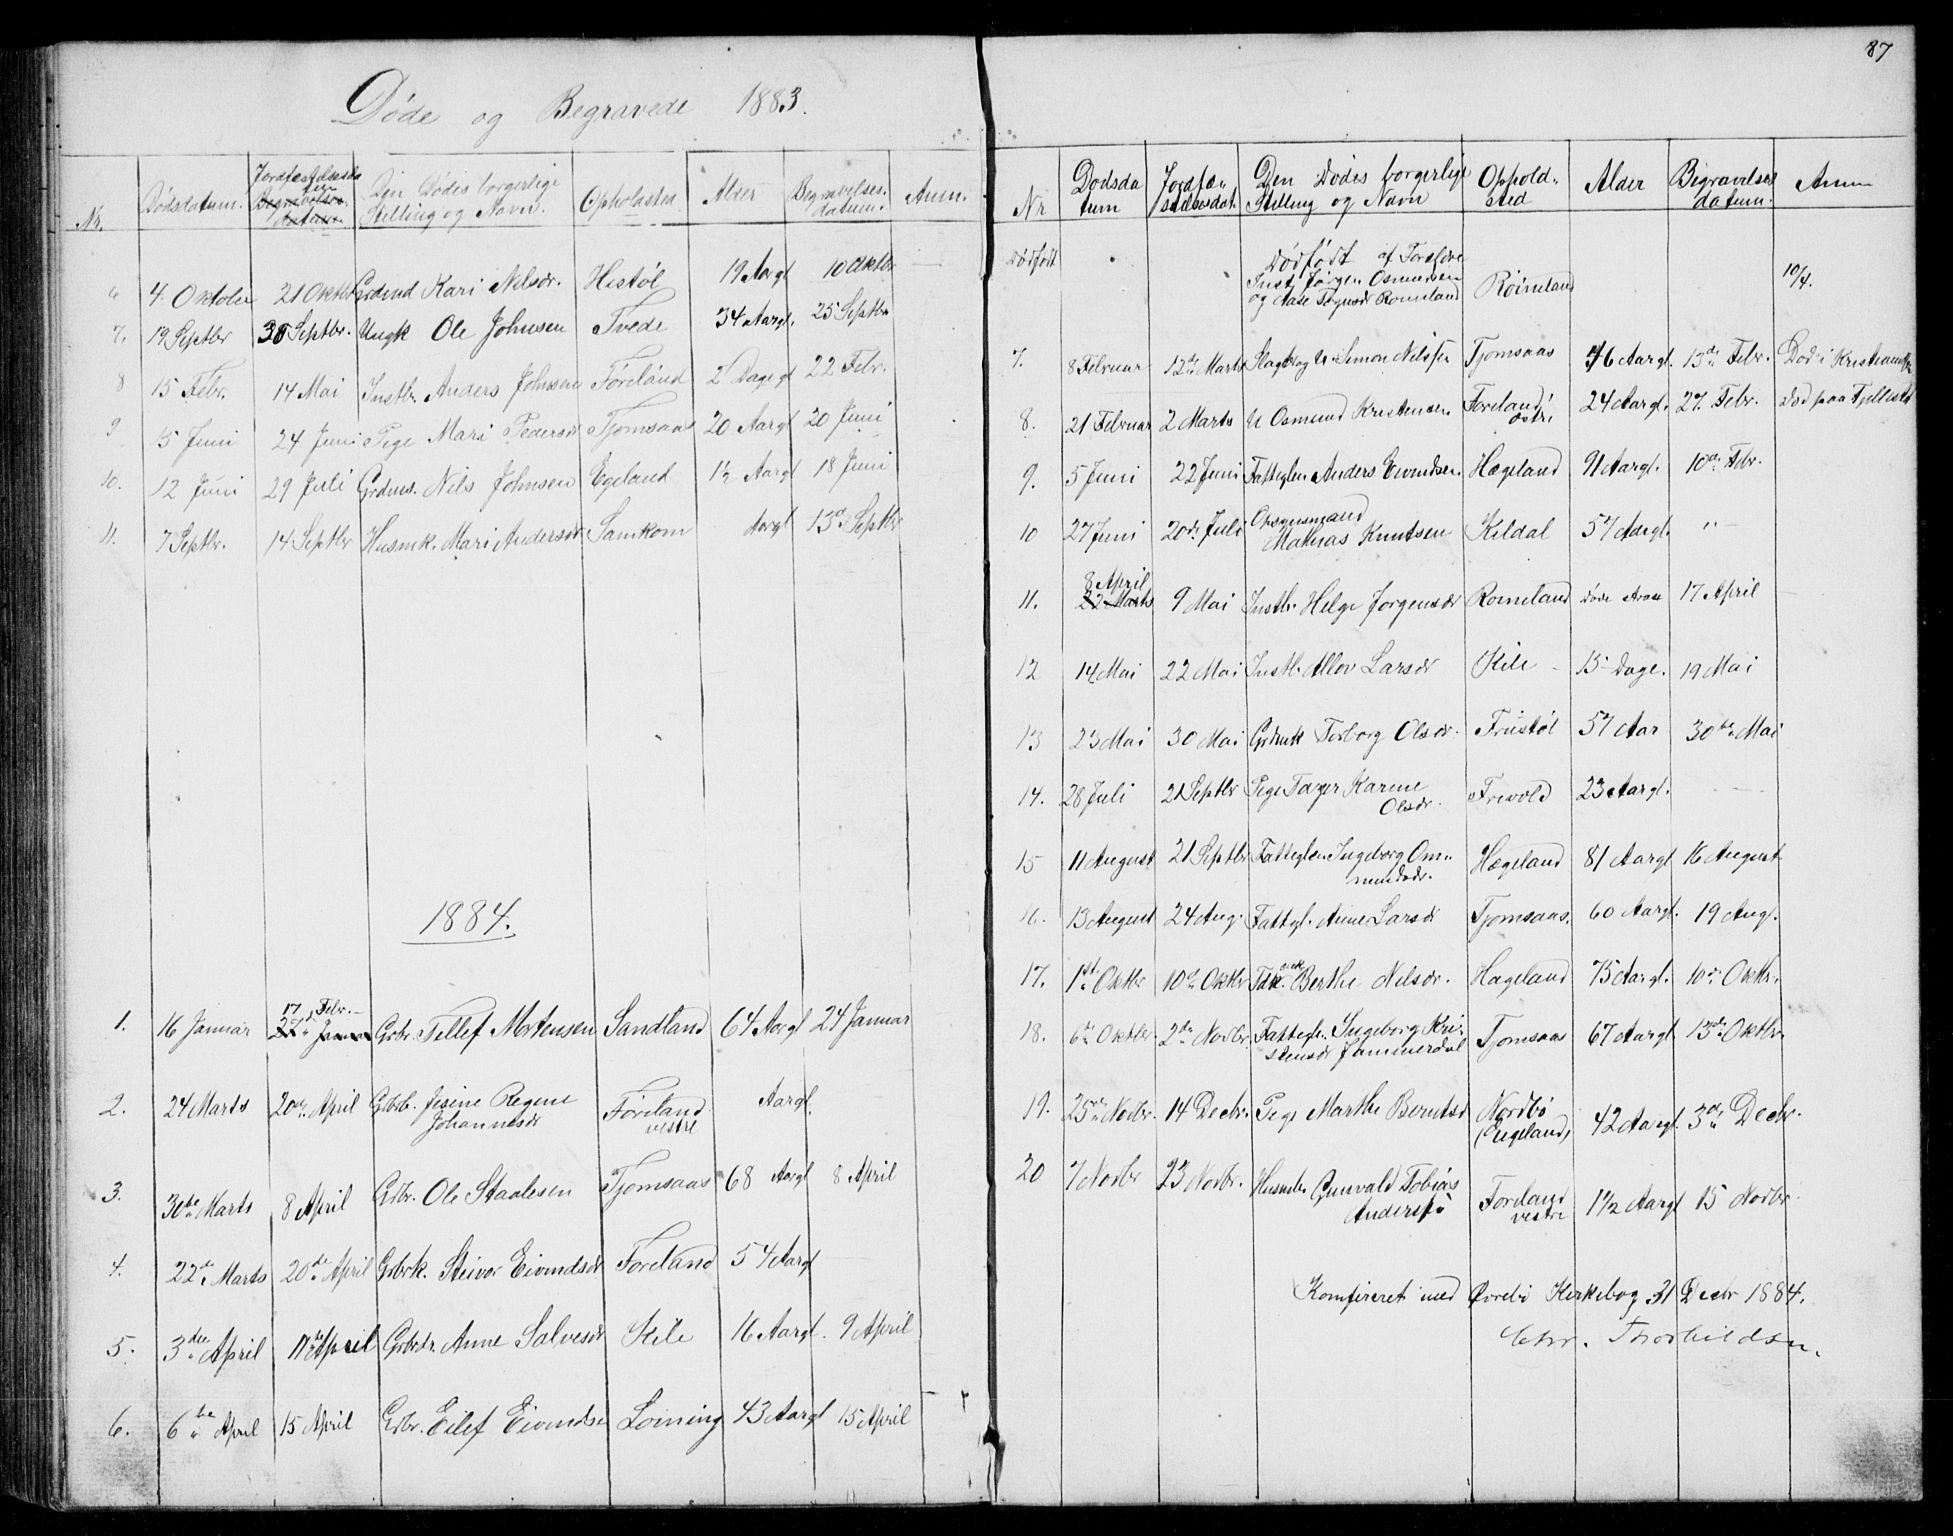 Døde og Begravede 1883.
Nr. Dødsdatum. Jordfæstelsesdatum Begravelsesdatum. Den Dødes borgerlige Stilling og Navn. Opholdsted Alder Begravelsesdatum. Anm.
6 4. Oktober 21 Oktbr Kari Nilsdr. Hestøl 19 Aargl 10 Oktbr
7. 19 Septbr 30 Septbr. Ungk Ole Johnsen Tvede 34 Aargl. 25 Septbr
8 15 Febr. 14 Mai Instbr. Anders Johnsen Føreland 2 Dage gl 22 Febr.
9 15 Juni 24 Juni Pige Mari Pedersdr Tjomsaas 20 Aargl 20 Juni
10. 12 Juni 29 Juli Grdms. Nils Johnsen Egeland 1½ Aargl 18 Juni
11. 7 Septbr. 14 Septbr Husmk. Mari Andersdr Samkom Aargl 13de Septbr
1884.
1. 16 Januar 17 Febr. 22de Januar Grbr. Tellef Mortensen Sandland 64 Aargl 24 Januar
2. 24 Marts 20de April Grbrb. Jesine Regine Johannesdr Føreland vestre Aargl.
3. 30te Marts 8 April Grbr. Ole Staalesen Tjomsaas 68 Aargl 8 April
4. 22de Marts 20de April Grbrk. Steivor Eivindsdr Føreland 54 Aargl
5. 3die April 11te April Grbrdr. Anne Salvesdr Kile 16 Aargl. 9 April
6. 6te April 15 April Grbr. Eilef Eivindsen Loining 43 Aargl 15 April
87
Nr Dødsdatum Jordfæstelsesdat. Den Dødes borgerlige Stilling og Navn Oppholdsted Alder Begravelsesdatum. Anm
Dødfødt Dødfødt af Forældre
Inst. Jørgen Osmundsen
og Aase Røineland Røineland 10/4.
7. 8 Februar 12te Marts U. Simon Nilssen Tjomsaas 46 Aargl. 13de Febr. Død i
8. 21 Februar 2 Marts U Osmund Kristensen Føreland østre 24 Aargl. 27. Febr. Død paa
9. 5 Juni 22 Juni Fattiglem Anders Eivindsen Hægeland 91 Aargl. 10de Febr.
10 27 Juni 20de Juli Opsynsmand Mathias Knutsen Kildal 57 Aargl. "
11. 8 April 22 Marts 9 Mai Instbr. Helge Jørgensdr Røineland 17 April
12 14 Mai 22 Mai Instb. Allov Larsdr Kile 13 Dage. 19 Mai
13 23 Mai 30 Mai Grdmk Torborg Olsdr. Frustøl 57 Aar 30te Mai
14. 28 Juli 21 Septbr Pige Karine Olsdr. Frivold 23 Aargl.
15 11 August 21 Septbr Fattiglem Ingeborg Ommundsdr. Hægeland 81 Aargl 16 August
16. 13 August 24 Aug. Fattigl. Anne Larsdr Tjomsaas. 60 Aargl. 19 Augl.
17. 1st Oktbr 10de Oktbr Berthe Nilsdr. Hægeland 75 Aargl. 10de Oktbr.
18. 6te Oktbr. 2de Novbr. Fattiglem Ingeborg Kristensdr Jammerdal Tjomsaas 67 Aargl. 13de Oktbr.
19. 25de Novbr. 14 Decbr. Pige Marthe Berntsd Nordbø (Eigeland) 42 Aargl. 3die Decbr.
20 7 Novbr 23 Novbr. Gunvald Tobias Føreland vestre 1½ Aargl 15 Novbr.
Konfireret med Øvrebø Kirkebog 31 Decbr 1884.
Chr. Thorkildsen.